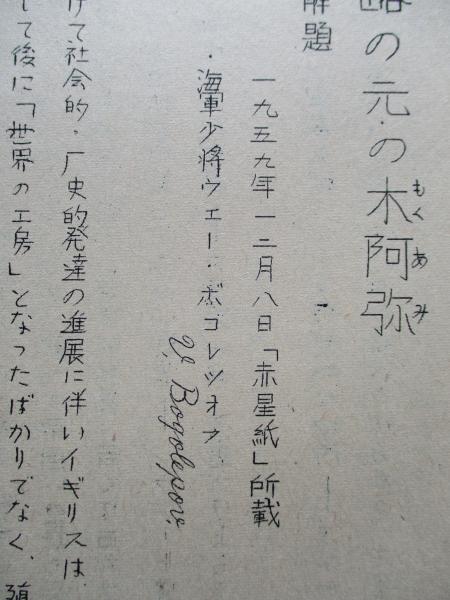 の元の木阿弥
もくあみ
解題
一九五九年一二月八日「赤星紙」所載
・海軍少将ウェー・ボコレツオフ
V. Bogolepov.
けて社会的・厂史的発達の進展に伴いイギリスは
して後に「世界の工房」となったばかりでなく、